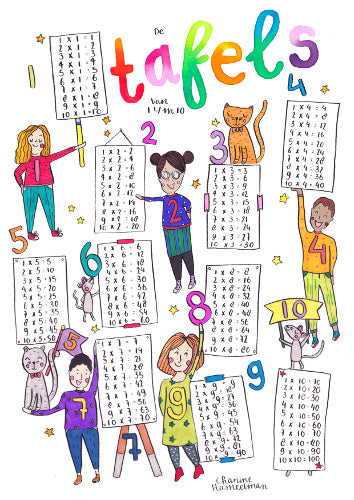 De
tafels
van
1 t/m 10
1
1 x 1 = 1
2 x 1 = 2
3 x 1 = 3
4 x 1 = 4
5 x 1 = 5
6 x 1 = 6
7 x 1 = 7
8 x 1 = 8
9 x 1 = 9
10 x 1 = 10
1
2
1 x 2 = 2
2 x 2 = 4
3 x 2 = 6
4 x 2 = 8
5 x 2 = 10
6 x 2 = 12
7 x 2 = 14
8 x 2 = 16
9 x 2 = 18
10 x 2 = 20
2
3
1 x 3 = 3
2 x 3 = 6
3 x 3 = 9
4 x 3 = 12
5 x 3 = 15
6 x 3 = 18
7 x 3 = 21
8 x 3 = 24
9 x 3 = 27
10 x 3 = 30
4
1 x 4 = 4
2 x 4 = 8
3 x 4 = 12
4 x 4 = 16
5 x 4 = 20
6 x 4 = 24
7 x 4 = 28
8 x 4 = 32
9 x 4 = 36
10 x 4 = 40
4
5
1 x 5 = 5
2 x 5 = 10
3 x 5 = 15
4 x 5 = 20
5 x 5 = 25
6 x 5 = 30
7 x 5 = 35
8 x 5 = 40
9 x 5 = 45
10 x 5 = 50
5
6
1 x 6 = 6
2 x 6 = 12
3 x 6 = 18
4 x 6 = 24
5 x 6 = 30
6 x 6 = 36
7 x 6 = 42
8 x 6 = 48
9 x 6 = 54
10 x 6 = 60
8
1 x 8 = 8
2 x 8 = 16
3 x 8 = 24
4 x 8 = 32
5 x 8 = 40
6 x 8 = 48
7 x 8 = 56
8 x 8 = 64
9 x 8 = 72
10 x 8 = 80
10
7
1 x 7 = 7
2 x 7 = 14
3 x 7 = 21
4 x 7 = 28
5 x 7 = 35
6 x 7 = 42
7 x 7 = 49
8 x 7 = 56
9 x 7 = 63
10 x 7 = 70
7
9
9
1 x 9 = 9
2 x 9 = 18
3 x 9 = 27
4 x 9 = 36
5 x 9 = 45
6 x 9 = 54
7 x 9 = 63
8 x 9 = 72
9 x 9 = 81
10 x 9 = 90
1 x 10 = 10
2 x 10 = 20
3 x 10 = 30
4 x 10 = 40
5 x 10 = 50
6 x 10 = 60
7 x 10 = 70
8 x 10 = 80
9 x 10 = 90
10 x 10 = 100